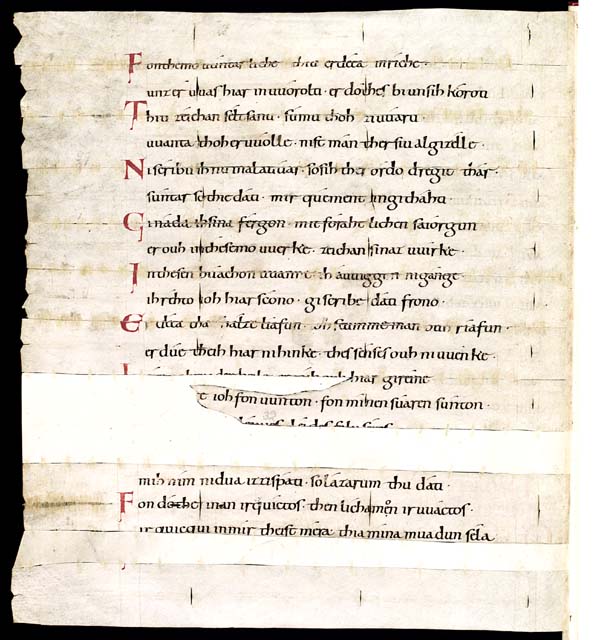 Fon themo uuntarliche thiu er deta in riche ·
unz er uuas hiar in uuorolti · er doh es bi unsih koroti
Thiu zeichan seltsanu · sumu thoh ziuuaru ·
uuanta thoh er uuolle · nist man ther siu al gizelle ·
Ni scribu ih nu in alauuar · so sih ther ordo dregit thar ·
suntar so thie dati · mir quement in gihahti ·
Ginada sina fergon · mit forahtlichen sorgun
er ouh in thesemo uuerke · zeichan sinaz uuirke ·
In thesen buachon uuanne ih auuiggon ni gange ·
ih rehto ioh hiar scono · giscribe dati frono ·
Er deta thaz halze liafun · ioh stumme man ouh riafun ·
er due theih hiar ni hinke · thes senses ouh ni uuenke ·
hiar gireine
ioh fon uunton · fon minen suaren sunton ·
mih nim · so lazarum thu dati ·
Fon dothe inan irquictos · then lichamon iruuactos ·
irquicqui in mir theist mera thia mina muadun sela